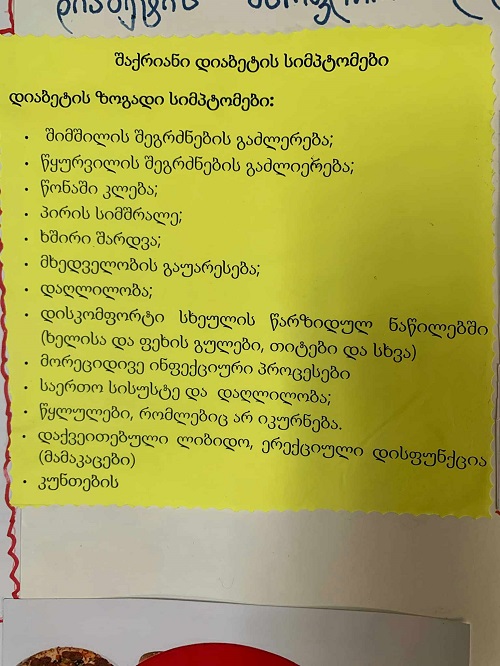 დიაბეტის
შაქრიანი დიაბეტის სიმპტომები
დიაბეტის ზოგადი სიმპტომები:
• შიმშილის შეგრძნების გაძლერება;
• წყურვილის შეგრძნების გაძლიერება;
• წონაში კლება;
• პირის სიმშრალე;
• ხშირი შარდვა;
• მხედველობის გაუარესება;
• დაღლილობა;
• დისკომფორტი სხეულის წარზიდულ ნაწილებში
(ხელისა და ფეხის გულები, თიტები და სხვა)
• მორეციდივე ინფექციური პროცესები
• საერთო სისუსტე და დაღლილობა;
• წყლულები, რომლებიც არ იკურნება.
• დაქვეითებული ლიბიდო, ერექციული დისფუნქცია
(მამაკაცები)
• კუნთების